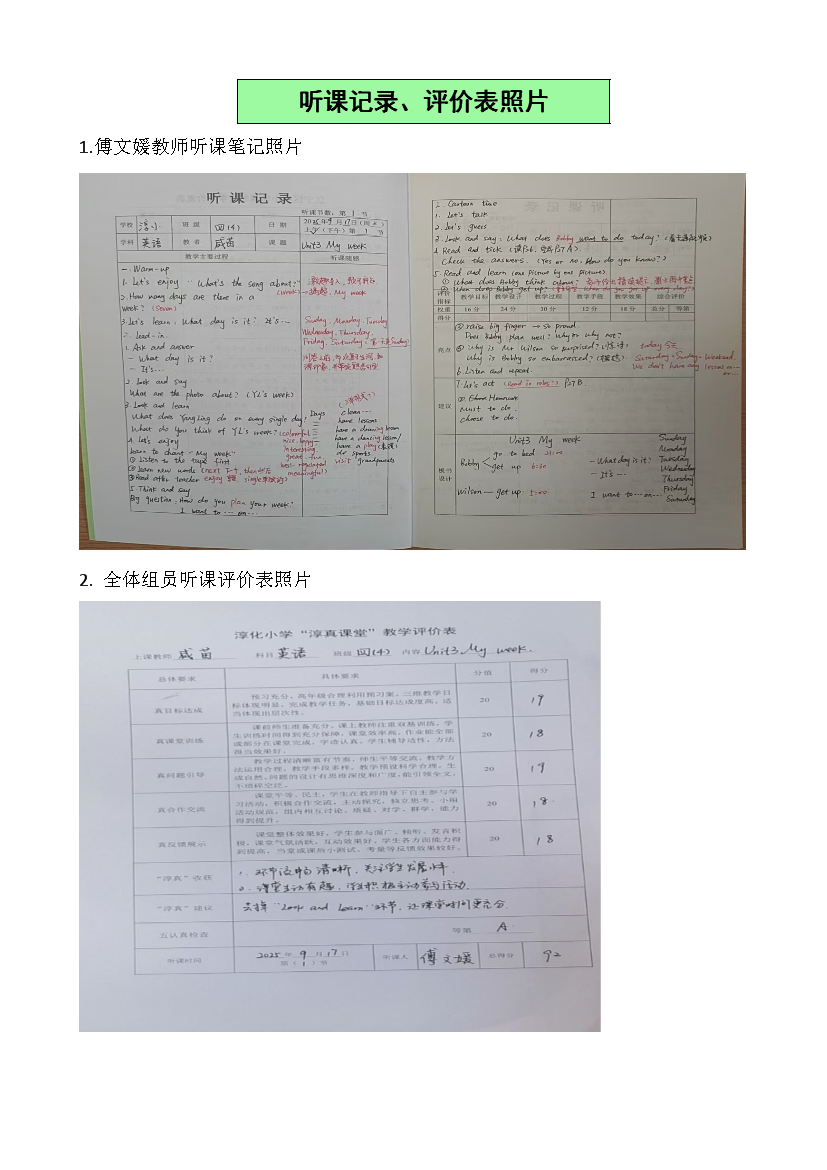 听课记录、评价表照片
1.傅文媛教师听课笔记照片
听 课 记 录
听课节数：第 1 节
学校 淳小 班级 四(4) 日期 2025年9月17日(周三)
上午(下午)第 1 节
学科 英语 教者 戚苗 课题 Unit3 My week
教学主要过程 听课随感
一. Warm-up
1. Let's enjoy "What's the song about?"
(week) → My week
2. How many days are there in a
week? (Seven)
3. Let's learn. What day is it? It's …
Sunday, Monday, Tuesday
Wednesday, Thursday,
Friday, Saturday
二. Lead-in
1. Ask and answer
- What day is it?
- It's …
2. Look and say
What are the photo about? (YL's week)
3. Look and learn
What does Yang Ling do on every single day?
Days
clean …
have lessons
have a drawing lesson
have a dancing lesson/
have a play
do sports
visit grandparents
What do you think of YL's week?
(colourful
nice, happy
interesting
great, fun,
well-regulated
meaningful)
4. Let's enjoy
Learn to chant "My week"
① Listen to the tape first
② Learn new words
③ Read after teacher
5. Think and say
Big question: How do you plan your week?
I want to … on …
三. Cartoon time
1. Let's talk
2. Let's guess
3. Look and say: What does Bobby want to do today?
4. Read and tick
Check the answers. (Yes or No, How do you know?)
5. Read and learn (one picture by one picture)
① What does Bobby think about?
评价指标 教学目标 教学设计 教学过程 教学手段 教学效果 综合评价
权重 16分 24分 30分 12分 18分 总分 等第
得分
亮点
③ raise big finger → so proud
Does Bobby plan well? Why or why not?
④ Why is Mr Wilson so surprised? today 5天
Why is Bobby so embarrassed? Saturday + Sunday = Weekend
We don't have any lessons on …
6. Listen and repeat.
建议
7. Let's act (Read in roles)
四. Homework
Must to do.
Choose to do.
板书设计
Unit3 My week
Bobby
go to bed 21:00
get up 6:20
Wilson — get up 5:00
- What day is it?
- It's …
I want to … on …
Sunday
Monday
Tuesday
Wednesday
Thursday
Friday
Saturday
2. 全体组员听课评价表照片
淳化小学“淳真课堂”教学评价表
上课教师 戚苗 科目 英语 班级 四(4) 内容 Unit3 My week.
总体要求 具体要求 分值 得分
真目标达成 预习充分，高年级合理利用预习案，三维教学目标体现明显，完成教学任务，基础目标达成度高，适当体现出层次性。 20 19
真课堂训练 课前师生准备充分，课上教师注重双基训练，学生训练时间得到充分保障，课堂效率高，作业能全部或部分在课堂完成，字迹认真，学生辅导适性，方法得当效果好。 20 18
真问题引导 教学过程清晰富有节奏，师生平等交流，教学方法运用合理，教学手段多样，教学预设科学合理，生成自然，问题的设计有思维深度和广度，能引领全文，不琐碎空泛。 20 19
真合作交流 课堂平等、民主，学生在教师指导下自主参与学习活动，积极合作交流，主动探究，独立思考，小组活动规范，组内相互讨论、质疑、对学、群学，能力得到提升。 20 18
真反馈展示 课堂整体效果好，学生参与面广，倾听、发言积极，课堂气氛活跃，互动效果好，学生各方面能力得到提高，当堂或课后小测试、考量等反馈效果较好。 20 18
“淳真”收获
1. 环节设计的清晰，关注学生发展水平.
2. 课堂生动有趣，学生积极主动参与活动.
“淳真”建议 去掉“Look and learn”环节，让课堂时间更充分.
五认真检查 等第 A
听课时间 2025年9月17日
第（1）节
听课人 傅文媛 总得分 92